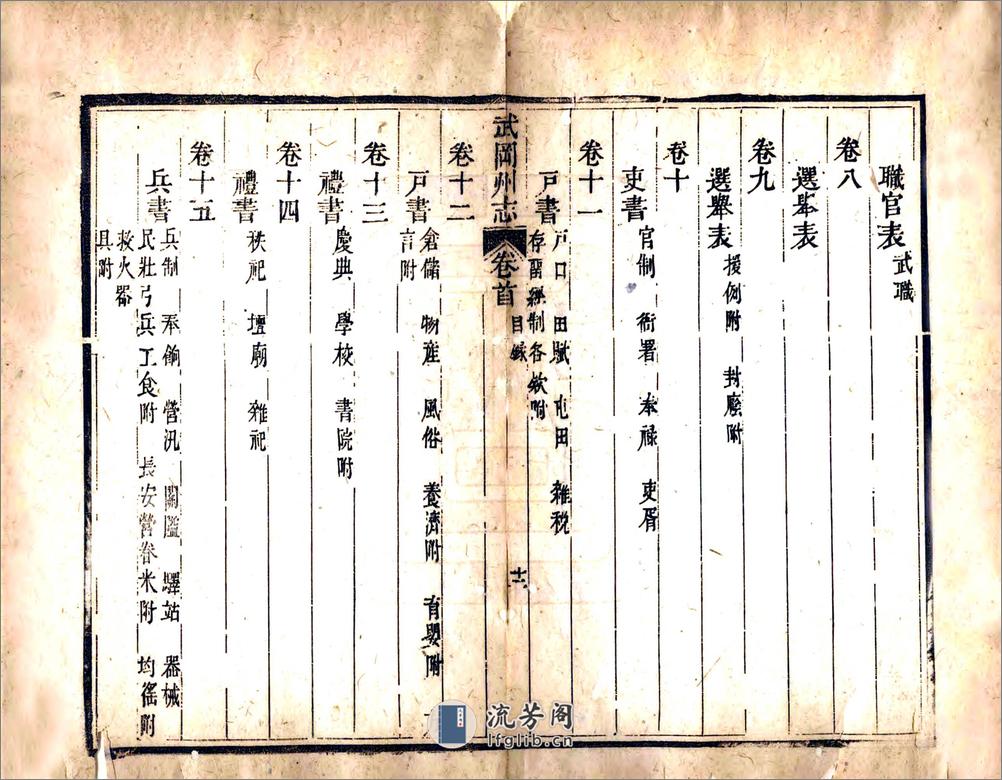 職官表 武職
卷八
選舉表
卷九
選舉表 援例附 封廕附
卷十
吏書 官制 衙署 奉祿 吏胥
卷十一
戸書 戸口 田賦 屯田 雜稅
存留經制各欵附
武岡州志 卷首 目錄 十六
卷十二
戸書 倉儲 物産 風俗 養濟附 育嬰附
言附
卷十三
禮書 慶典 學校 書院附
卷十四
禮書 秩祀 壇廟 雜祀
卷十五
兵書 兵制 奉餉 營汛 關隘 驛站 器械
民壯弓兵工食附 長安營眷米附 均徭附
救火器
具附
流芳阁
lfglib.cn